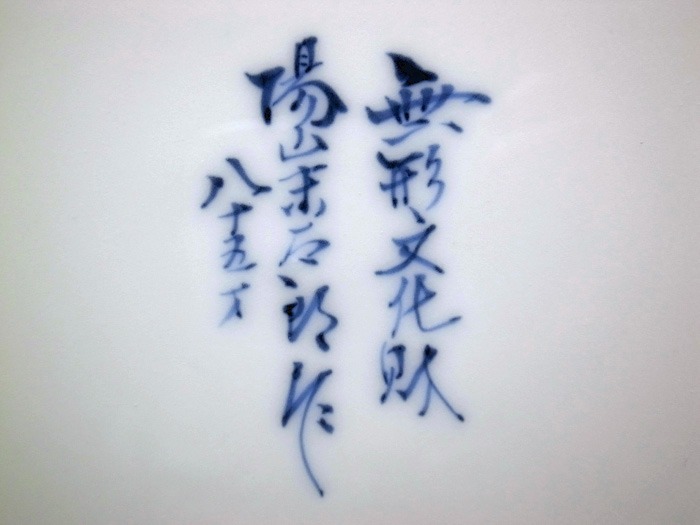 無形文化財
陽山 郎作
八十五才